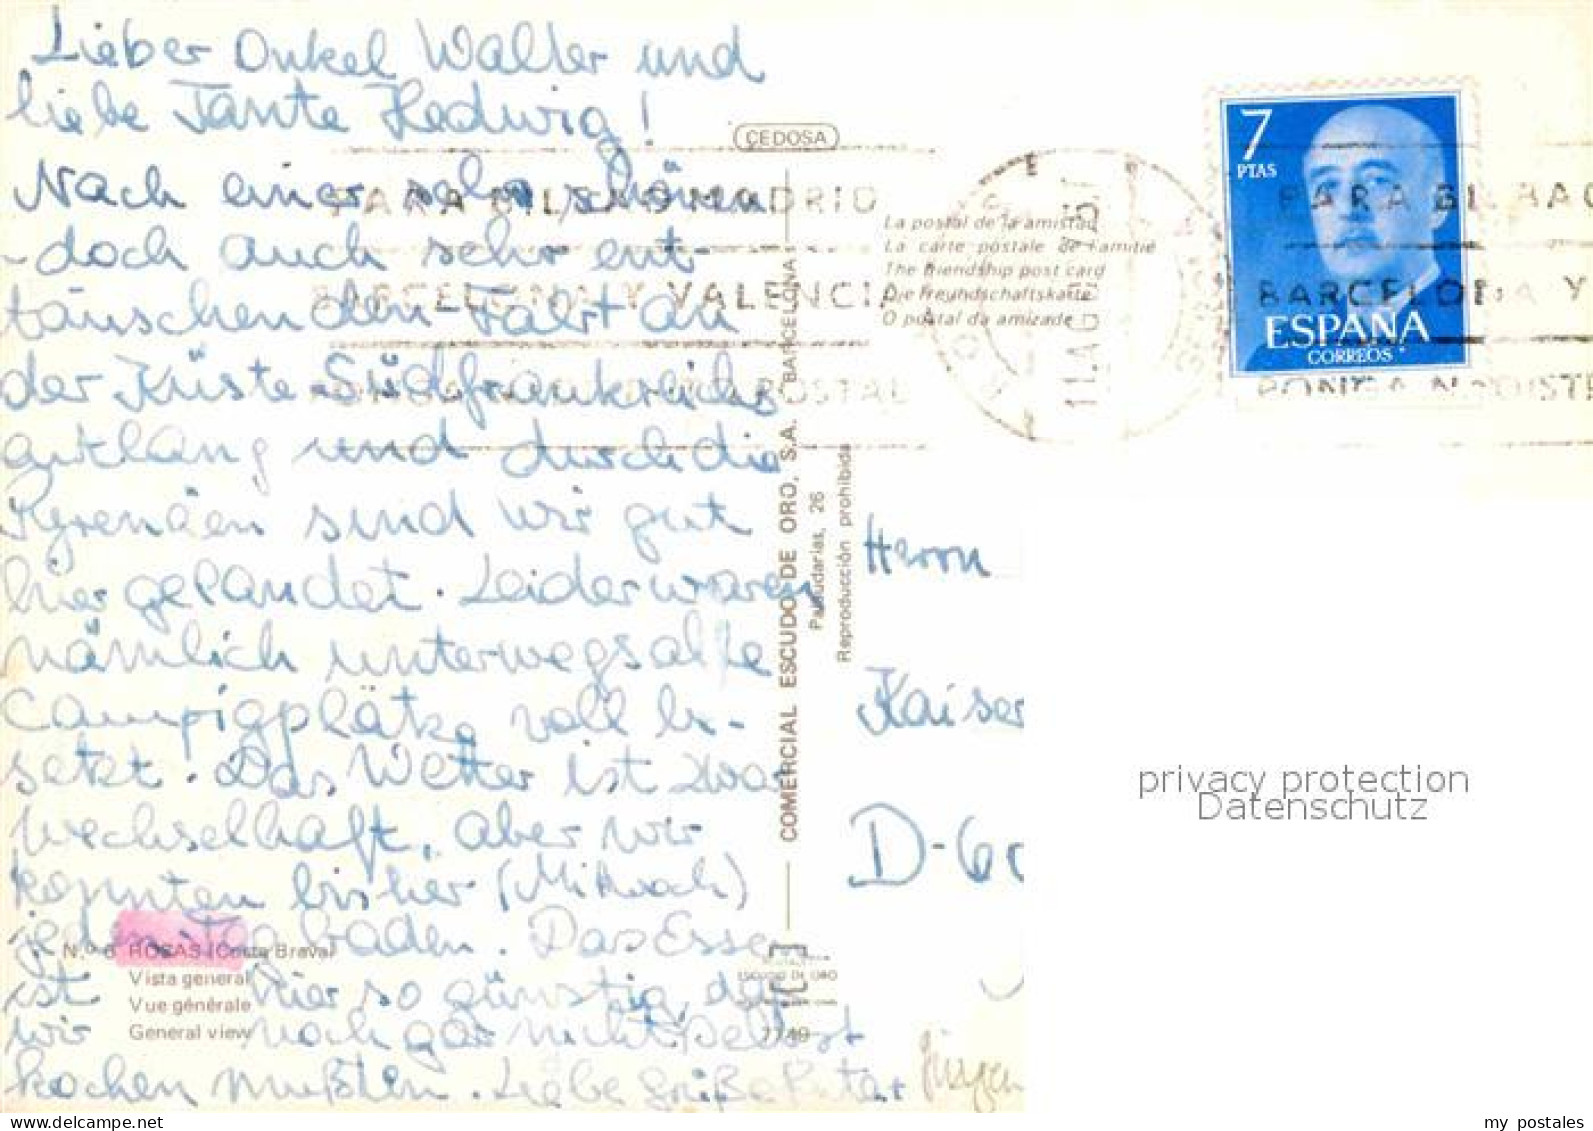 Lieber Onkel Walter und
liebe Tante Hedwig!
Nach einer sehr schönen
- doch auch sehr ent-
täuschenden Fahrt an
der Küste Südfrankreichs
entlang und durch die
Pyrenäen sind wir gut
hier gelandet. Leider waren
nämlich unterwegs alle
Campigplätze voll be-
setzt. Das Wetter ist zwar
wechselhaft, aber wir
konnten bisher (Mittwoch)
jeden Tag baden. Das Essen
ist hier so günstig, daß
wir noch gar nicht selbst
kochen mußten. Liebe Grüße Peter
N.º 6 ROSAS (Costa Brava)
Vista general
Vue générale
General view
CEDOSA
COMERCIAL ESCUDO DE ORO, S.A. BARCELONA
Palaudarias, 26
Reproducción prohibida
ESCUDO DE ORO
7749
La postal de la amistad
La carte postale de l'amitié
The friendship post card
Die Freundschaftskarte
O postal da amizade
PARA BILBAO MADRID
BARCELONA Y VALENCIA
PONGA N.º DISTRITO POSTAL
7
PTAS
ESPAÑA
CORREOS
PARA BILBAO
BARCELONA Y
PONGA N.º DISTR
Herrn
Kaiser
D-60
privacy protection
Datenschutz
my_postales